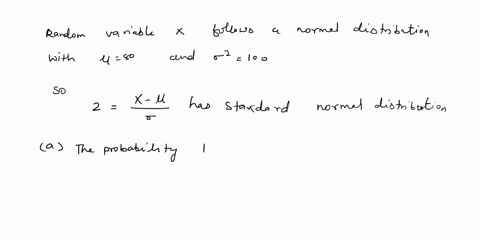 Random variable X follows a normal distribution
with μ = 80 and σ² = 100
so
Z = (X - μ)/σ has standard normal distribution
(a) The probability